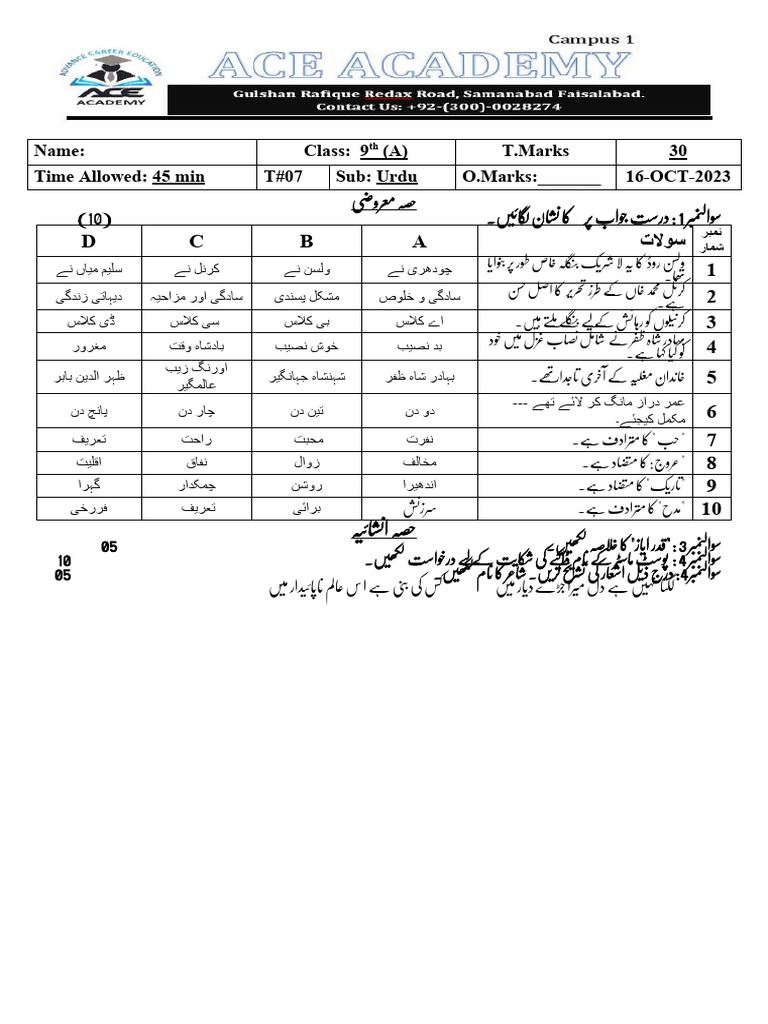 Campus 1
ACE ACADEMY
ADVANCE CAREER EDUCATION
ACE
ACADEMY
Gulshan Rafique Redax Road, Samanabad Faisalabad.
Contact Us: +92-(300)-0028274
Name: Class: 9th (A) T.Marks 30
Time Allowed: 45 min T#07 Sub: Urdu O.Marks:_______ 16-OCT-2023
حصہ معروضی
سوالنمبر1: درست جواب پر کا نشان لگائیں۔ (10)
نمبر شمار سوالات A B C D
1 ولسن روڈ کا یہ لا شریک بنگلہ خاص طور پر بنوایا تھا۔ چودھری نے ولسن نے کرنل نے سلیم میاں نے
2 کرنل محمد خاں کے طرز تحریر کا اصل حسن ہے۔ سادگی و خلوص مشکل پسندی سادگی اور مزاحیہ دیہاتی زندگی
3 کرنیلوں کو رہائش کے لیے بنگلے ملتے ہیں۔ اے کلاس بی کلاس سی کلاس ڈی کلاس
4 بہادر شاہ ظفر نے شامل نصاب غزل میں خود کو کیا کہا ہے۔ بد نصیب خوش نصیب بادشاہ وقت مغرور
5 خاندان مغلیہ کے آخری تاجدار تھے۔ بہادر شاہ ظفر شہنشاہ جہانگیر اورنگ زیب عالمگیر ظہر الدین بابر
6 عمر دراز مانگ کر لائے تھے --- مکمل کیجئے۔ دو دن تین دن چار دن پانچ دن
7 "حب" کا مترادف ہے۔ نفرت محبت راحت تعریف
8 "عروج: کا متضاد ہے۔ مخالف زوال نفاق اقلیت
9 "تاریک" کا متضاد ہے۔ اندھیرا روشن چمکدار گہرا
10 "مدح" کا مترادف ہے۔ سرزنش برائی تعریف فررخی
حصہ انشائیہ
سوالنمبر3: "قدر ایاز" کا خلاصہ لکھیں۔ 05
سوالنمبر4: پوسٹ ماسٹر کے نام ڈاکیے کی شکایت کے لیے درخواست لکھیں۔ 10
سوالنمبر4: درج ذیل اشعار کی تشریح کریں۔ شاعر کا نام لکھیں 05
لگتا نہیں ہے دل میرا اجڑے دیار میں کس کی بنی ہے اس عالم ناپائیدار میں